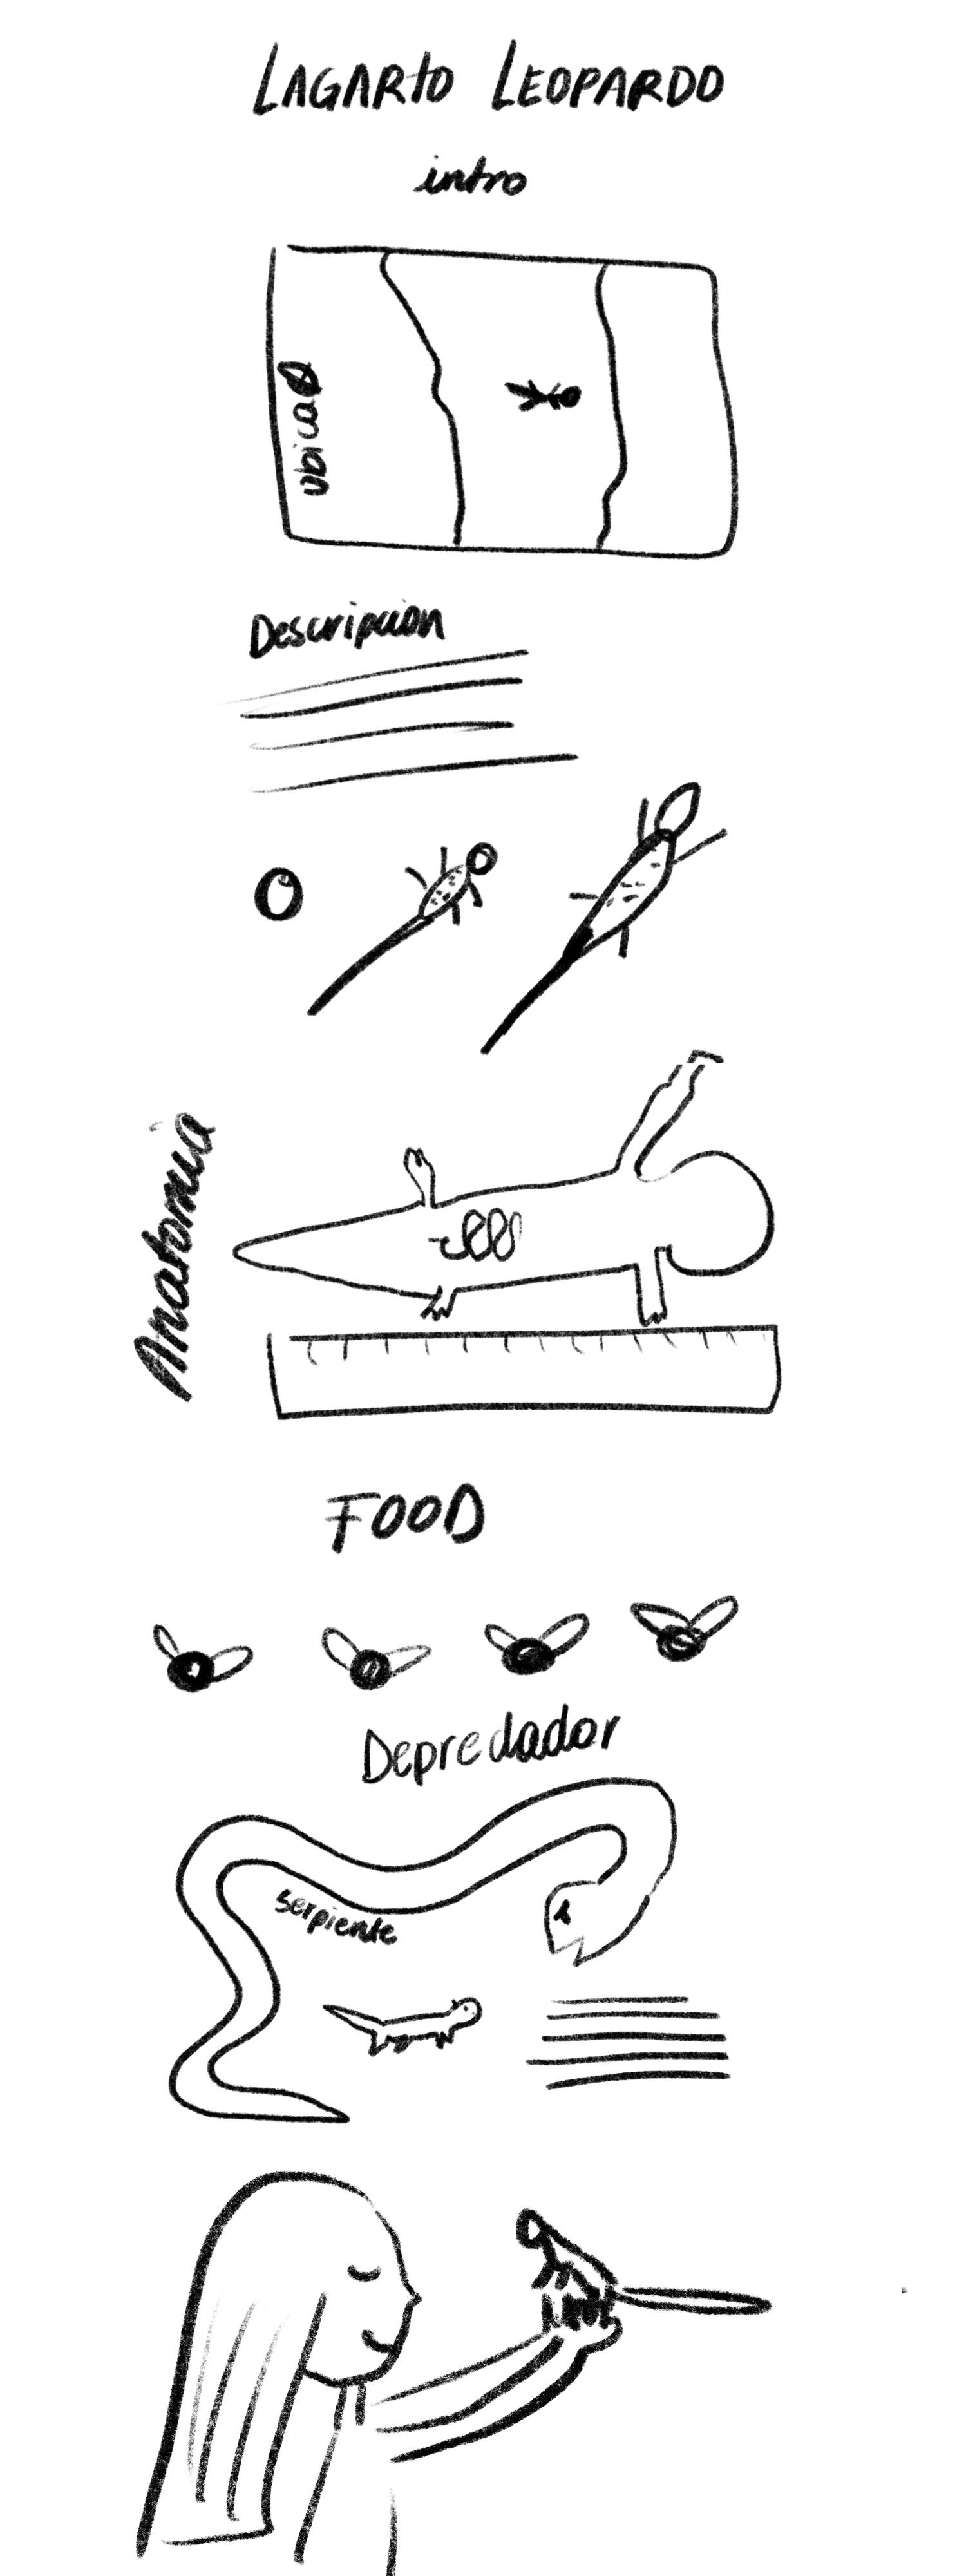 LAGARtO LEOPARDO
intro
ubica
Descripcion
Anatomia
FOOD
Depredador
serpiente